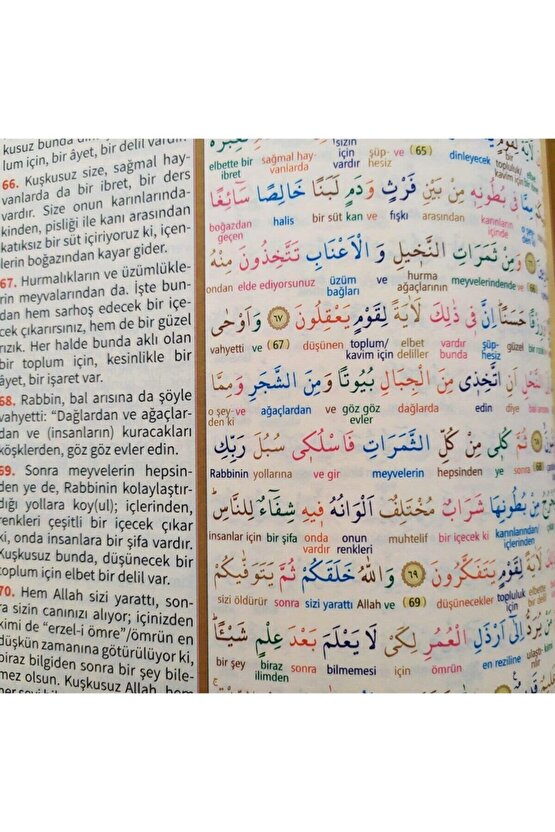 kusuz bunda
lum için, bir âyet, bir delil vardır.
66. Kuşkusuz size, sağmal hay-
vanlarda da bir ibret, bir ders
vardır. Size onun karınlarında-
kinden, pisliği ile kanı arasından
katıksız bir süt içiriyoruz ki, içen-
lerin boğazından kayar gider.
67. Hurmalıkların ve üzümlükle-
rin meyvalarından da. İşte bun-
dan hem sarhoş edecek bir içe-
cek çıkarırsınız, hem de bir güzel
rızık. Her halde bunda aklı olan
bir toplum için, kesinlikle bir
âyet, bir işaret var.
68. Rabbin, bal arısına da şöyle
vahyetti: “Dağlardan ve ağaçlar-
dan ve (insanların) kuracakları
köşklerden, göz göz evler edin.
69. Sonra meyvelerin hepsin-
den ye de, Rabbinin kolaylaştır-
dığı yollara koy(ul); içlerinden,
renkleri çeşitli bir içecek çıkar
ki, onda insanlara bir şifa vardır.
Kuşkusuz bunda, düşünecek bir
toplum için elbet bir delil var.
70. Hem Allah sizi yarattı, son-
ra sizin canınızı alıyor; içinizden
kimi de “erzel-i ömre”/ömrün en
düşkün zamanına götürülüyor ki,
biraz bilgiden sonra bir şey bile-
mez olsun. Kuşkusuz Allah, hem
لَاٰيَةً لِقَوْمٍ
elbette bir ibret sağmal hay-vanlarda sizin için vardır şüp-hesiz ve (65) dinleyecek bir topluluk/kavim için
مِمَّا فٖي بُطُونِهٖ مِنْ بَيْنِ فَرْثٍ وَدَمٍ لَبَنًا خَالِصًا سَائِغًا
boğazdan geçen halis bir süt kan ve fışkı arasından karınların içinde
وَمِنْ ثَمَرَاتِ النَّخٖيلِ وَالْاَعْنَابِ تَتَّخِذُونَ مِنْهُ
ondan elde ediyorsunuz üzüm bağları ve hurma ağaçlarının meyvelerinden de ve (66)
حَسَنًا اِنَّ فٖي ذٰلِكَ لَاٰيَةً لِقَوْمٍ يَعْقِلُونَ ٦٧ وَاَوْحٰى
vahyetti ve (67) düşünen toplum/kavim için elbet deliller vardır bunda şüp-hesiz güzel
اَنِ اتَّخِذٖي مِنَ الْجِبَالِ بُيُوتًا وَمِنَ الشَّجَرِ وَمِمَّا
o şey-den ki ve ağaçlardan ve göz göz evler dağlarda edin diye
ثُمَّ كُلٖي مِنْ كُلِّ الثَّمَرَاتِ فَاسْلُكٖي سُبُلَ رَبِّكِ
Rabbinin yollarına ve gir meyvelerin hepsinden ye sonra (68)
مِنْ بُطُونِهَا شَرَابٌ مُخْتَلِفٌ اَلْوَانُهُ فٖيهِ شِفَاءٌ لِلنَّاسِ
insanlar için bir şifa onda vardır onun renkleri muhtelif bir içecek ki karınlarından/içlerinden
لَاٰيَةً لِقَوْمٍ يَتَفَكَّرُونَ ٦٩ وَاللّٰهُ خَلَقَكُمْ ثُمَّ يَتَوَفّٰيكُمْ
sizi öldürür sonra sizi yarattı Allah ve (69) düşünecekler topluluk için elbet bir delil
مَنْ يُرَدُّ اِلٰٓى اَرْذَلِ الْعُمُرِ لِكَيْ لَا يَعْلَمَ بَعْدَ عِلْمٍ شَيْـًٔا
bir şey biraz ilimden sonra bilmemesi için ömrün en reziline